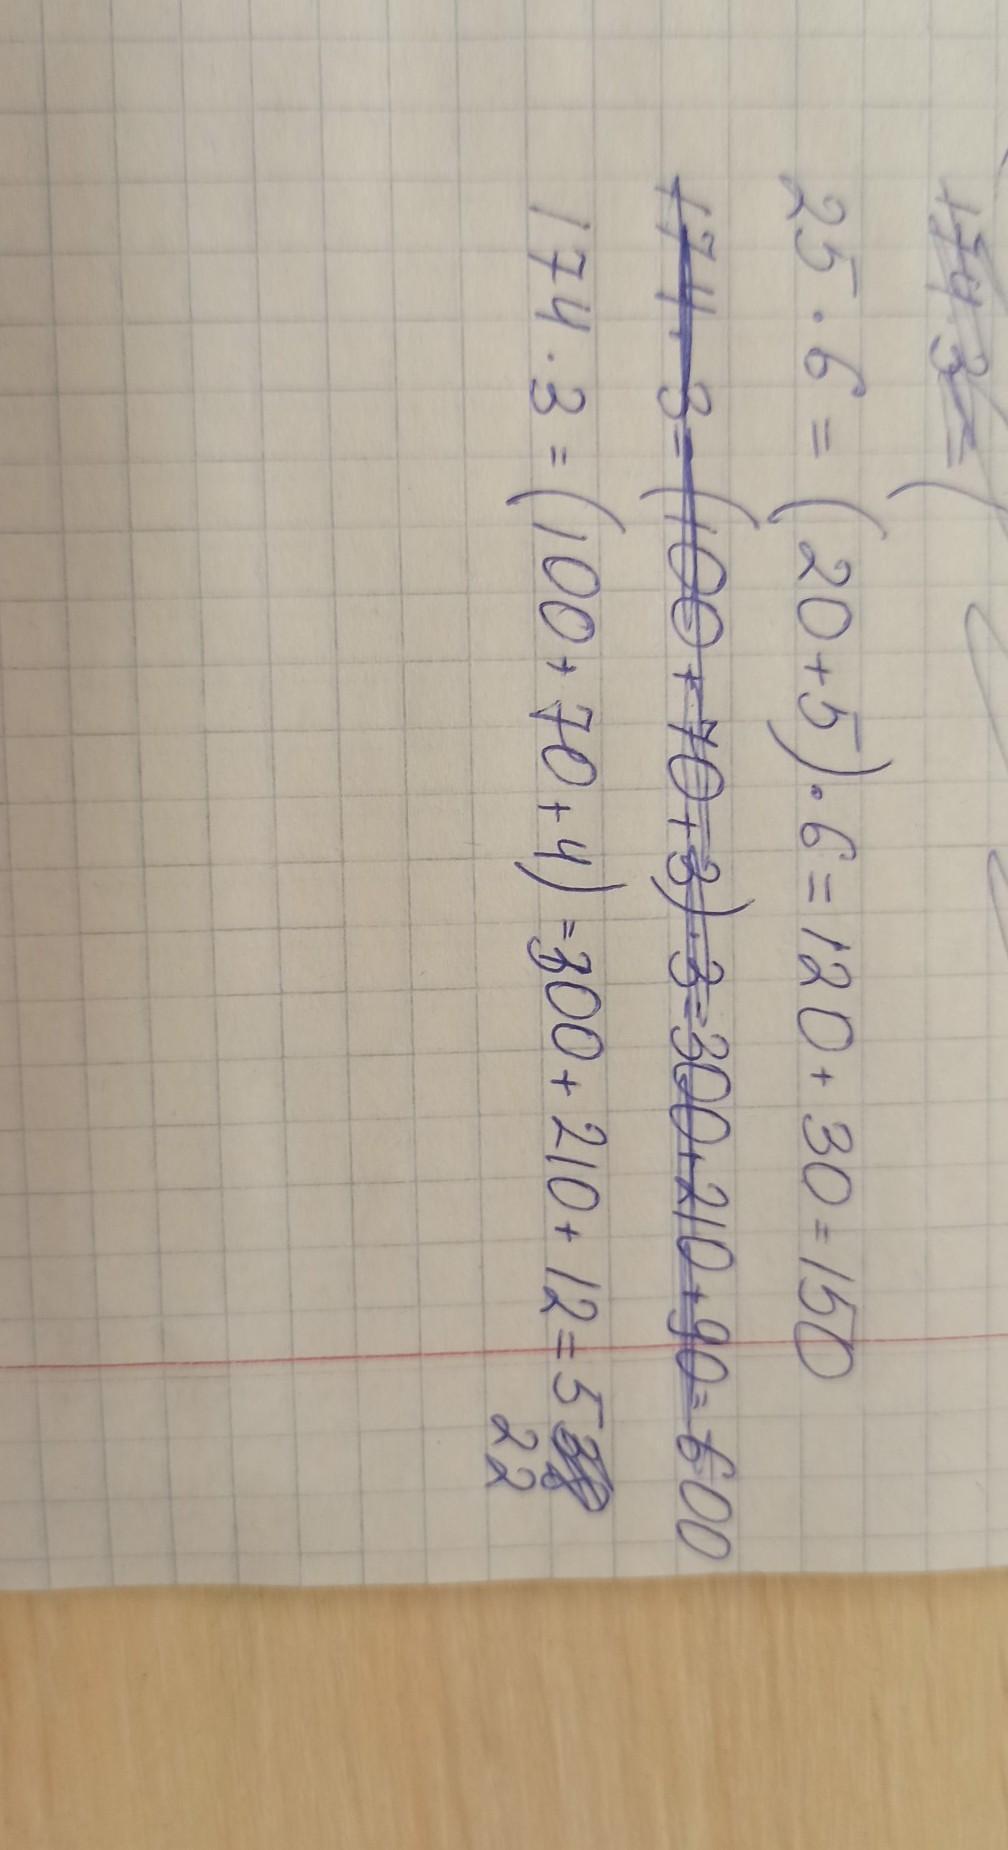 174·3=(
25·6=(20+5)·6=120+30=150
174·3=(100+70+3)·3=300+210+90=600
174·3=(100+70+4)=300+210+12=5
22